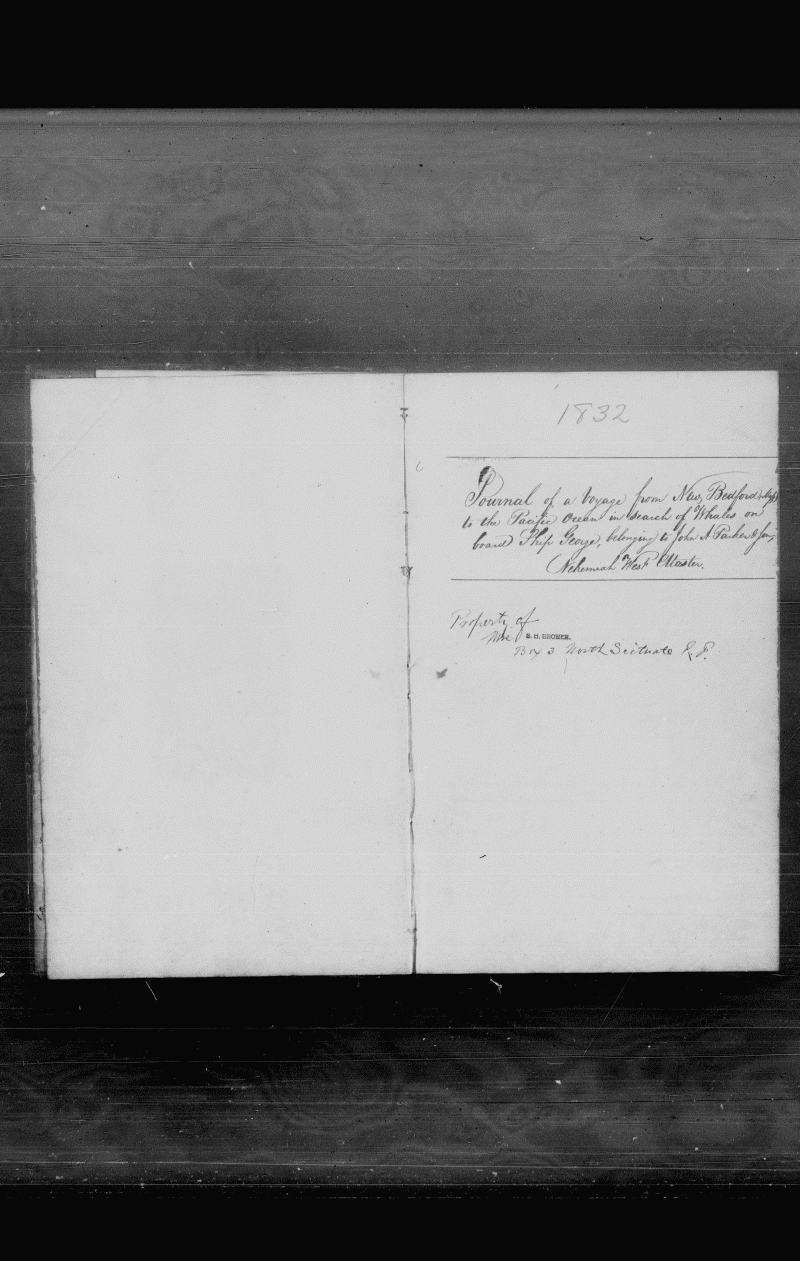 1832
Journal of a Voyage from New Bedford
to the Pacific Ocean in search of Whales on
board Ship George, belonging to John A Parker &
Nehemiah West Master.
Property of
Mrs S. H.
Box 3 North Scituate R. I.